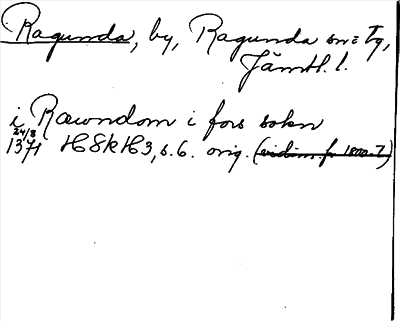 Ragunda, by, Ragunda sn: tg,
Jämtl. l.
i Rawndom i fors sokn
24/3
1371 HSkH3, s. 6. orig. (vidim. fr 1500-t)